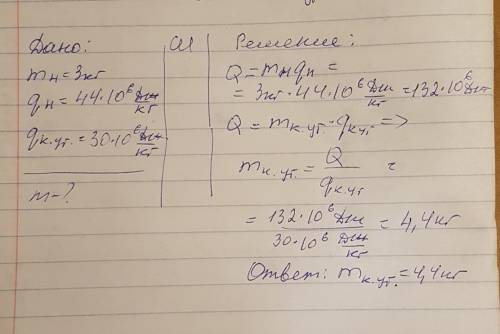 Дано:
mн = 3кг
qн = 44·10⁶ Дж/кг
qк.уг. = 30·10⁶ Дж/кг
m - ?
СИ
Решение:
Q = mн qн =
= 3кг · 44·10⁶ Дж/кг = 132·10⁶ Дж
Q = mк.уг. · qк.уг. =>
mк.уг. = Q/qк.уг. =
= 132·10⁶ Дж / 30·10⁶ Дж/кг = 4,4кг
Ответ: mк.уг. = 4,4кг